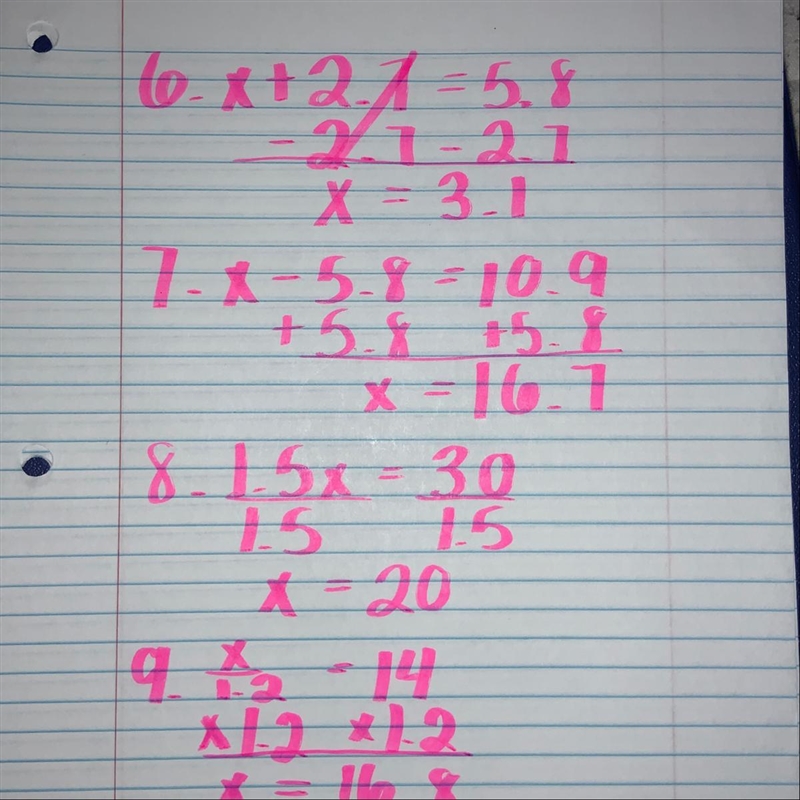 6. x + 2.7 = 5.8
- 2.7 - 2.7
x = 3.1
7. x - 5.8 = 10.9
+ 5.8 + 5.8
x = 16.7
8. 1.5x = 30
1.5 1.5
x = 20
9. x/1.2 = 14
x1.2 x1.2
x = 16.8